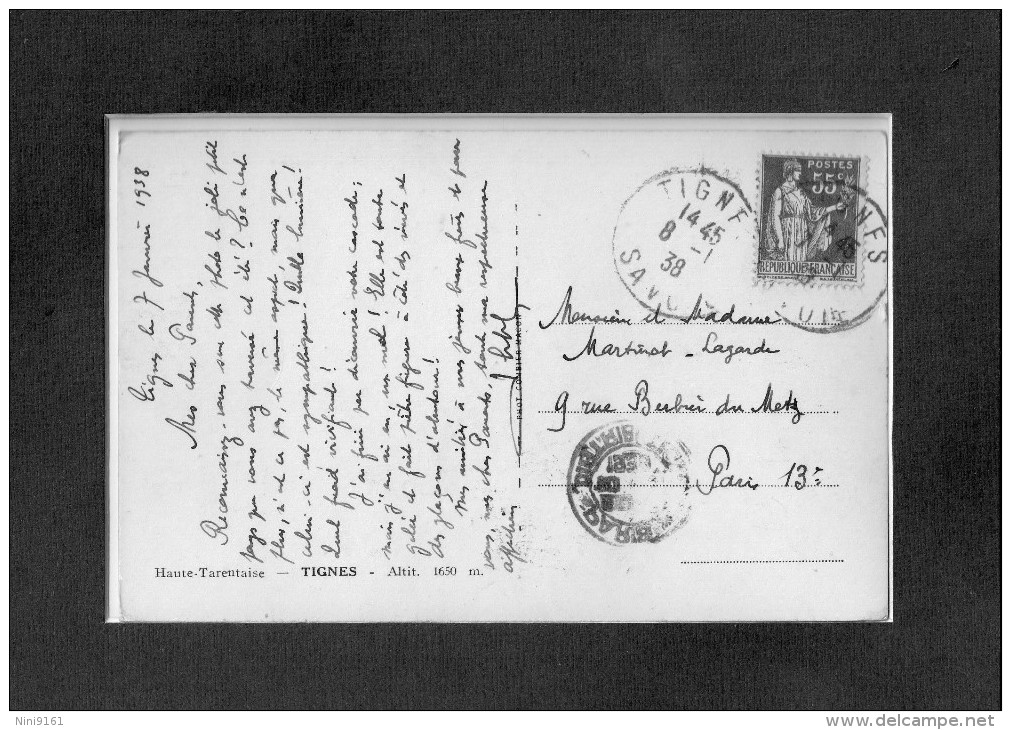 Tignes le 7 Janvier 1938
Mes chers Parents,
Reconnaissez-vous sur cette photo le joli petit
pays que vous avez traversé cet été ? Ce n'est
plus, à ce , le même aspect, mais que
celui-ci est sympathique ! Quelle lumière !
Quel froid vivifiant !
J'ai fini par découvrir votre cascade ;
mais j'y ai eu du mal ! Elle est toute
gelée et fait piètre figure à côté des cuves et
des glaçons d'alentour !
Mes amitiés à mes jeunes beaux frères et pour
vous, mes chers Parents, toute ma respectueuse
affection
PHOT. COMBIER MACON
Haute-Tarentaise — TIGNES - Altit. 1650 m.
POSTES
55c
REPUBLIQUE FRANÇAISE
TIGNES
14 45
8 -1
38
SAVOIE
TIGNES
Monsieur et Madame
Martinot - Lagarde
9 rue Berbier du Metz
Paris 13e
DISTRIBUTION
Nini9161
www.delcampe.net